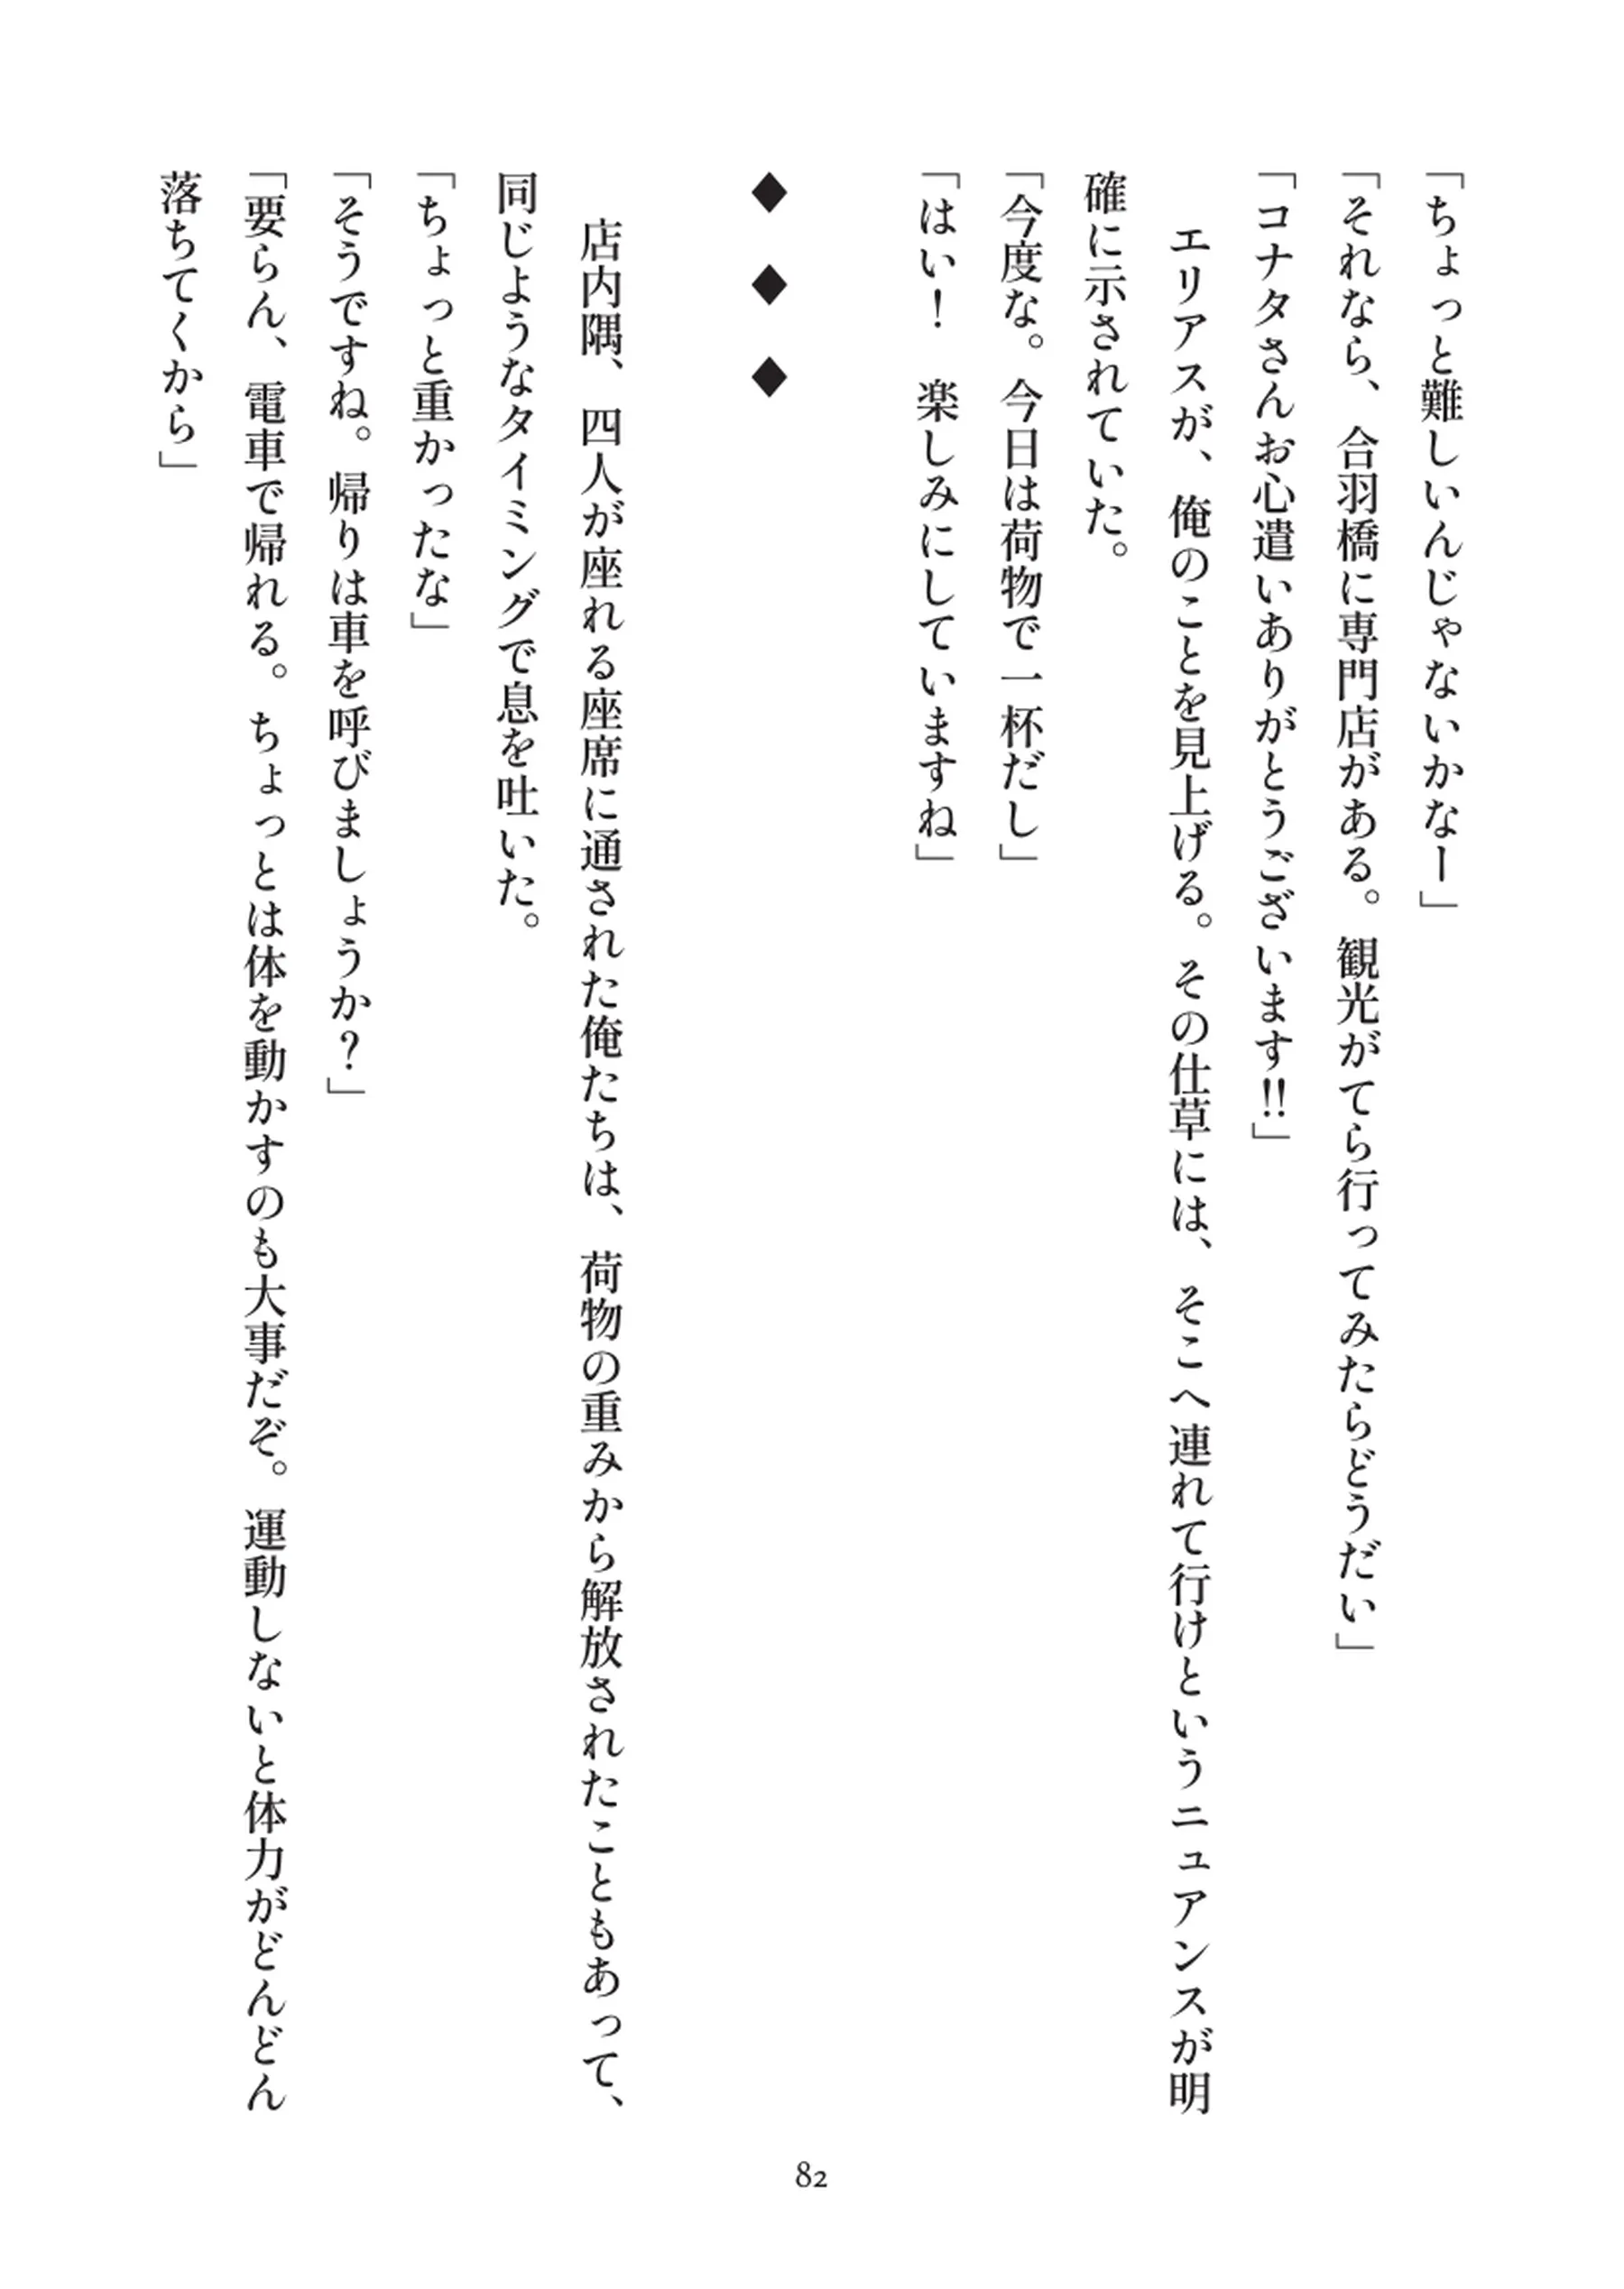 「ちょっと難しいんじゃないかなー」
「それなら、合羽橋に専門店がある。観光がてら行ってみたらどうだい」
「コナタさんお心遣いありがとうございます!!」
　エリアスが、俺のことを見上げる。その仕草には、そこへ連れて行けというニュアンスが明
確に示されていた。
「今度な。今日は荷物で一杯だし」
「はい！　楽しみにしていますね」
◆　◆　◆
　店内隅、四人が座れる座席に通された俺たちは、荷物の重みから解放されたこともあって、
同じようなタイミングで息を吐いた。
「ちょっと重かったな」
「そうですね。帰りは車を呼びましょうか？」
「要らん、電車で帰れる。ちょっとは体を動かすのも大事だぞ。運動しないと体力がどんどん
落ちてくから」
82